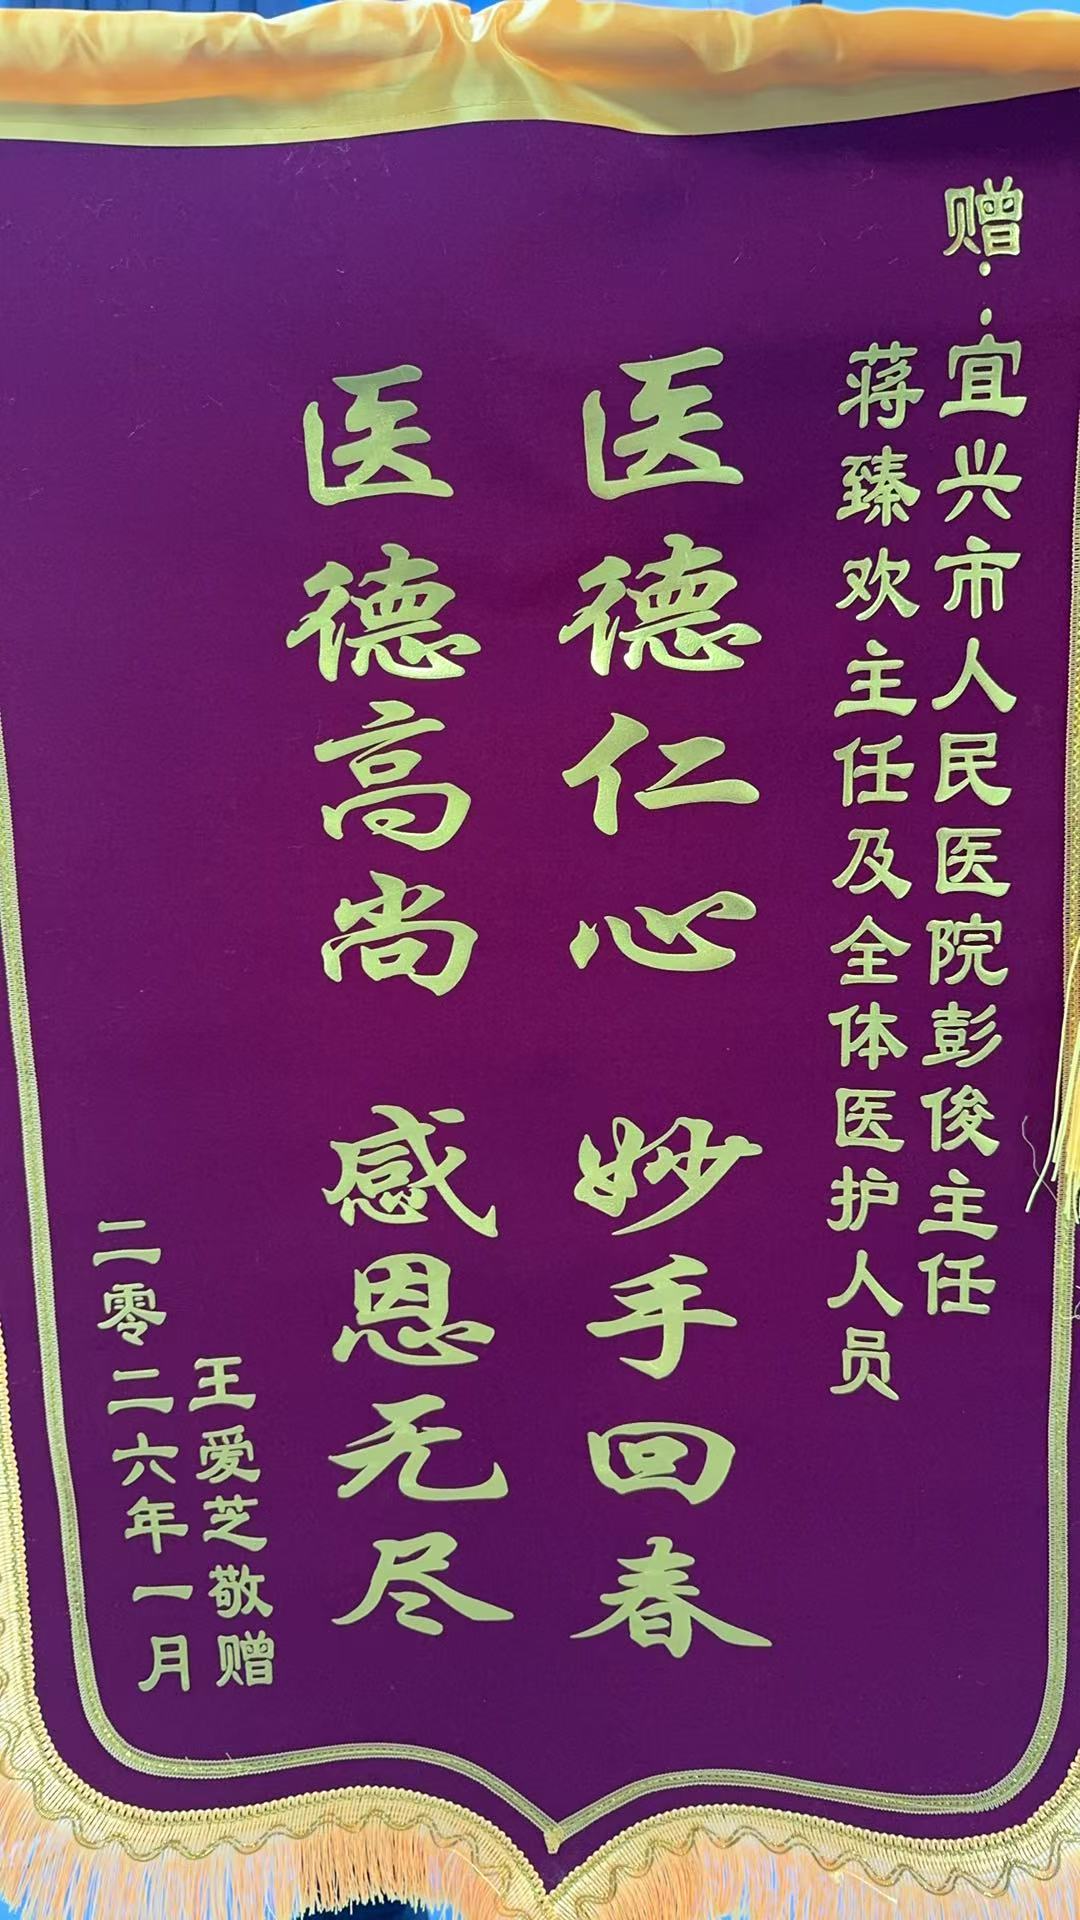 赠：宜兴市人民医院彭俊主任
蒋臻欢主任及全体医护人员
医德仁心 妙手回春
医德高尚 感恩无尽
王爱芝敬赠
二零二六年一月